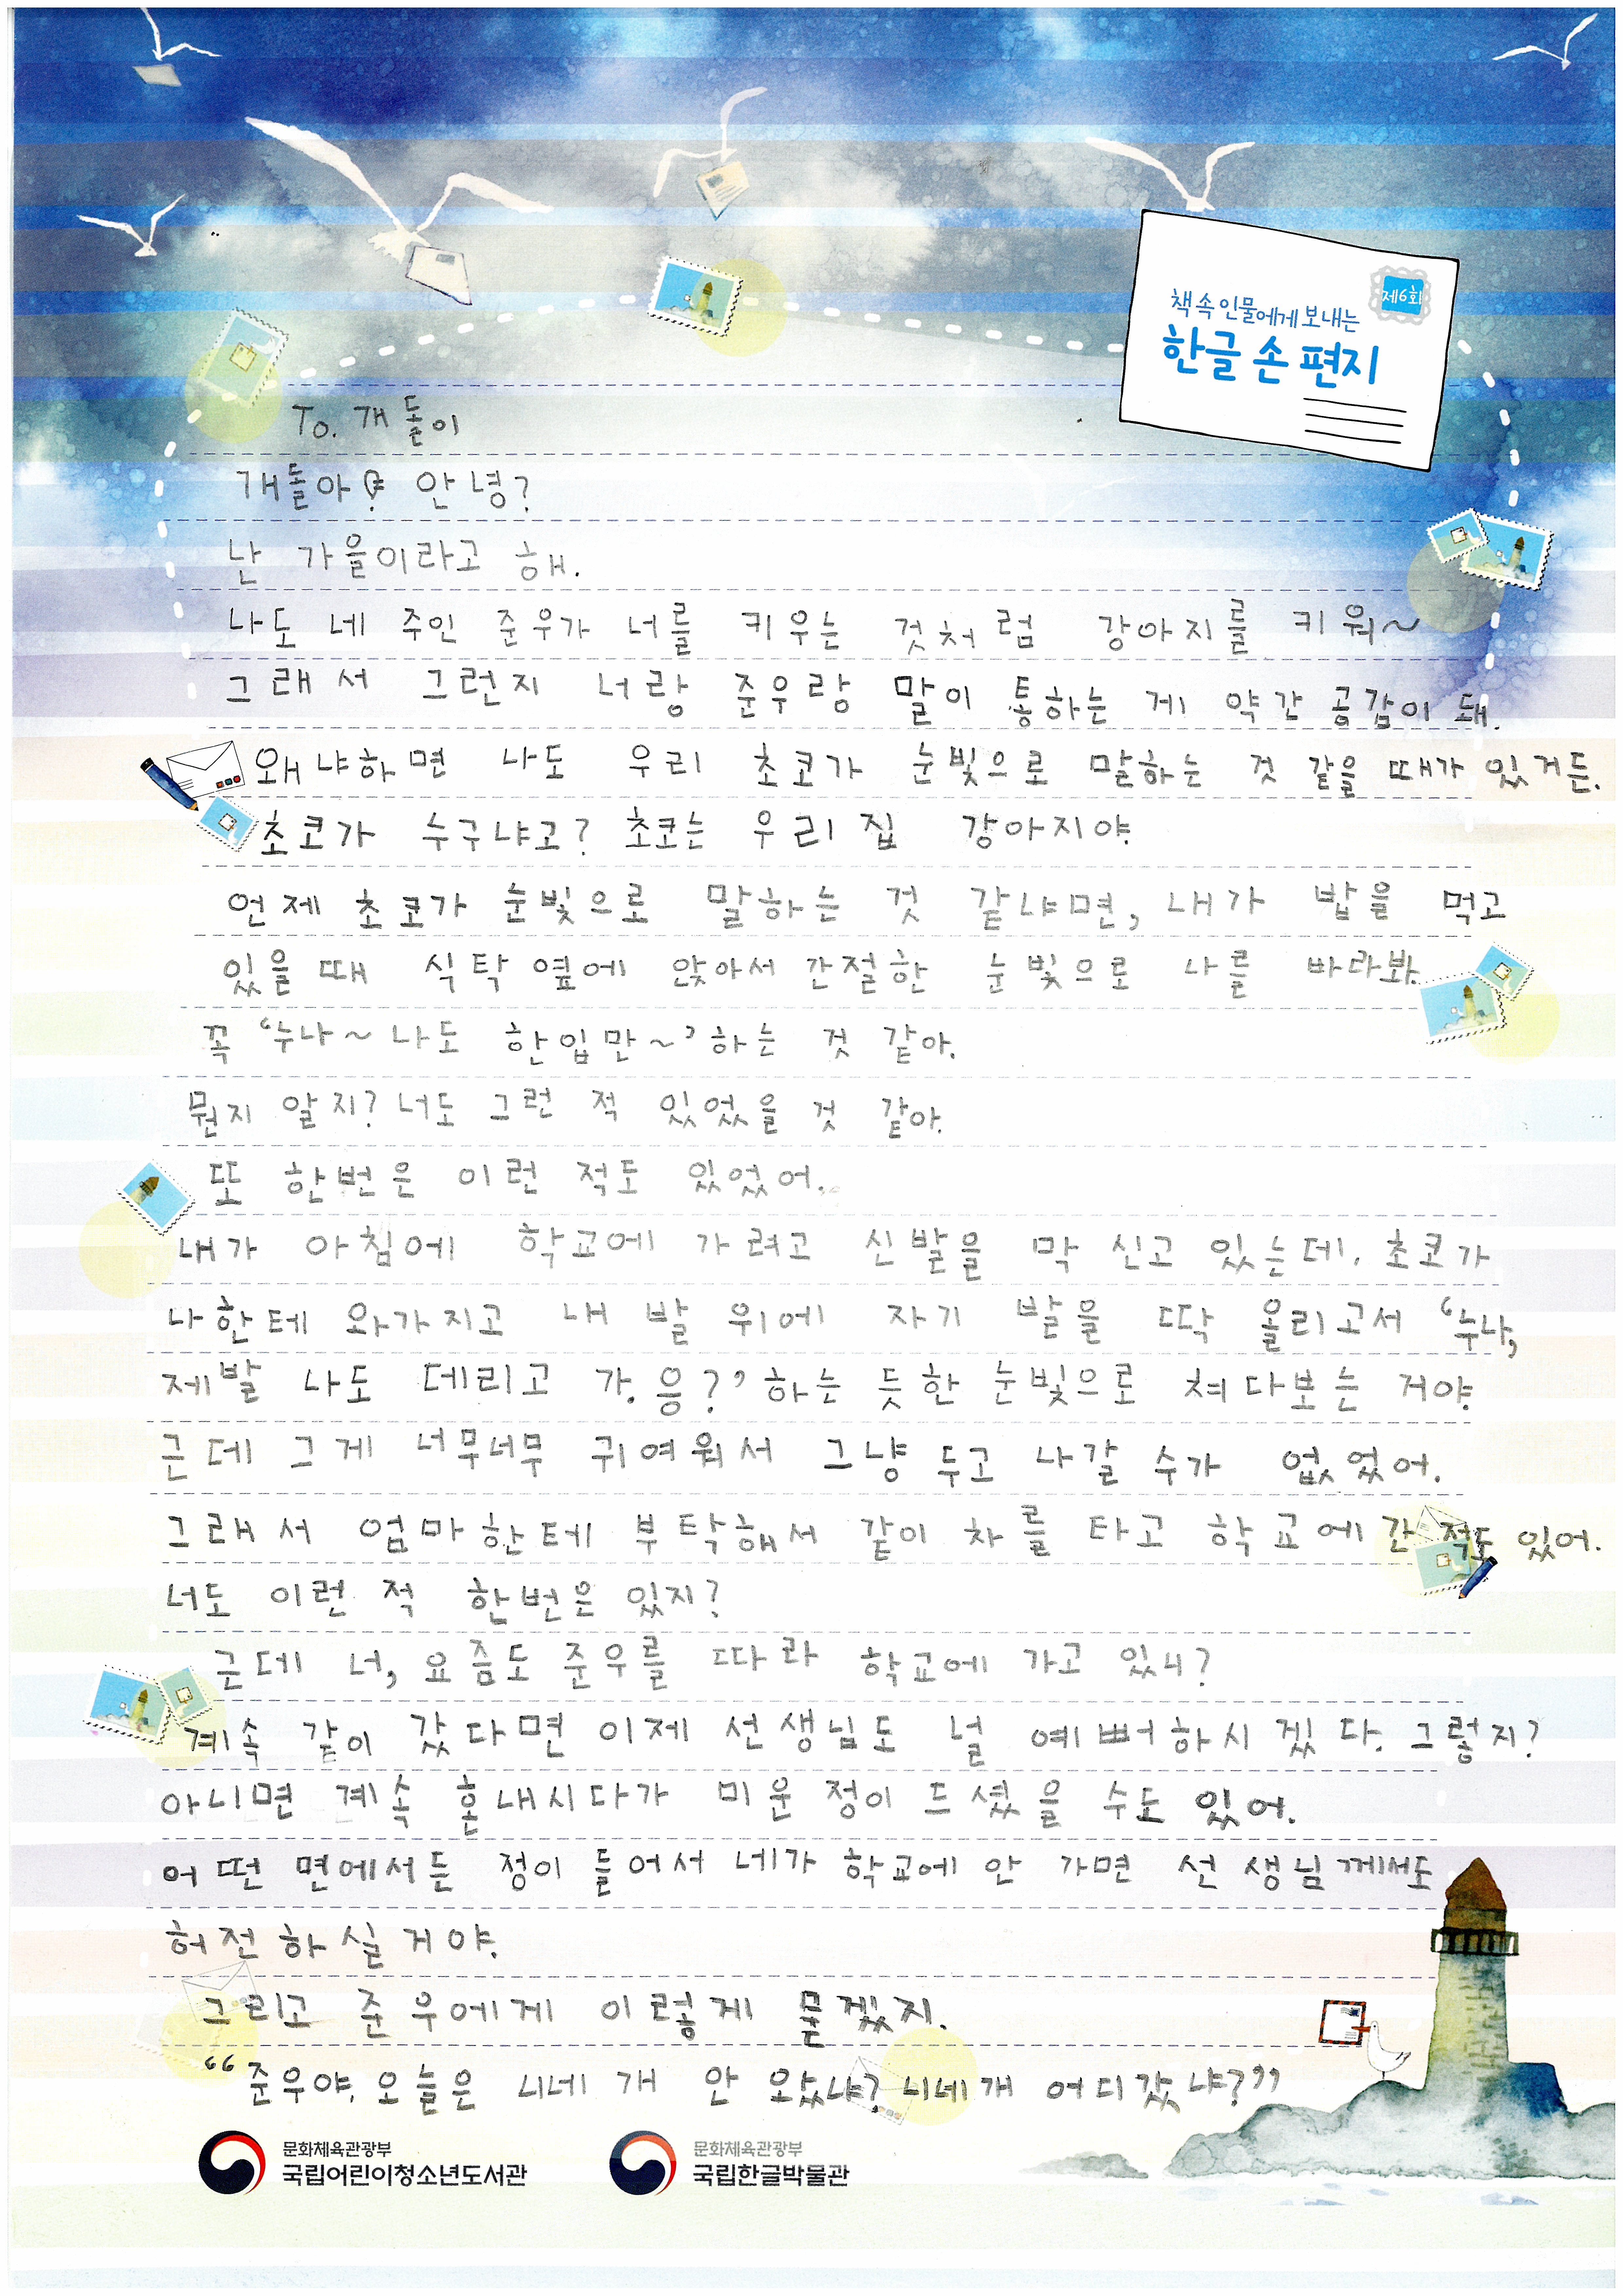 제6회
책 속 인물에게 보내는
한글 손 편지
To. 개돌이
개돌아! 안녕?
난 가을이라고 해.
나도 네 주인 준우가 너를 키우는 것처럼 강아지를 키워~
그래서 그런지 너랑 준우랑 말이 통하는 게 약간 공감이 돼.
왜냐하면 나도 우리 초코가 눈빛으로 말하는 것 같을 때가 있거든.
초코가 누구냐고? 초코는 우리 집 강아지야.
언제 초코가 눈빛으로 말하는 것 같냐면, 내가 밥을 먹고
있을 때 식탁 옆에 앉아서 간절한 눈빛으로 나를 바라봐.
꼭 ‘누나~ 나도 한입만~’ 하는 것 같아.
뭔지 알지? 너도 그런 적 있었을 것 같아.
또 한번은 이런 적도 있었어.
내가 아침에 학교에 가려고 신발을 막 신고 있는데, 초코가
나한테 와가지고 내 발 위에 자기 발을 딱 올리고서 ‘누나,
제발 나도 데리고 가. 응?’ 하는 듯한 눈빛으로 쳐다보는 거야.
근데 그게 너무너무 귀여워서 그냥 두고 나갈 수가 없었어.
그래서 엄마한테 부탁해서 같이 차를 타고 학교에 간 적도 있어.
너도 이런 적 한번은 있지?
근데 너, 요즘도 준우를 따라 학교에 가고 있니?
계속 같이 갔다면 이제 선생님도 널 예뻐하시겠다. 그렇지?
아니면 계속 혼내시다가 미운 정이 드셨을 수도 있어.
어떤 면에서든 정이 들어서 네가 학교에 안 가면 선생님께서도
허전하실 거야.
그리고 준우에게 이렇게 묻겠지.
“준우야, 오늘은 니네 개 안 왔냐? 니네 개 어디갔냐?”
문화체육관광부
국립어린이청소년도서관
문화체육관광부
국립한글박물관